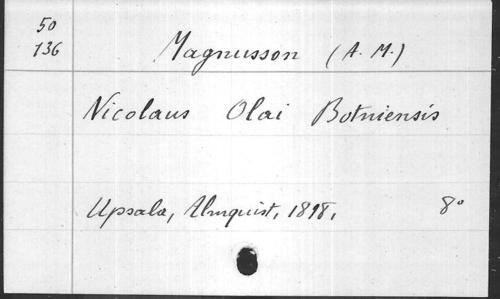 50
136
Magnusson (A. M.)
Nicolaus Olai Botniensis
Upsala, Almquist, 1898, 8°